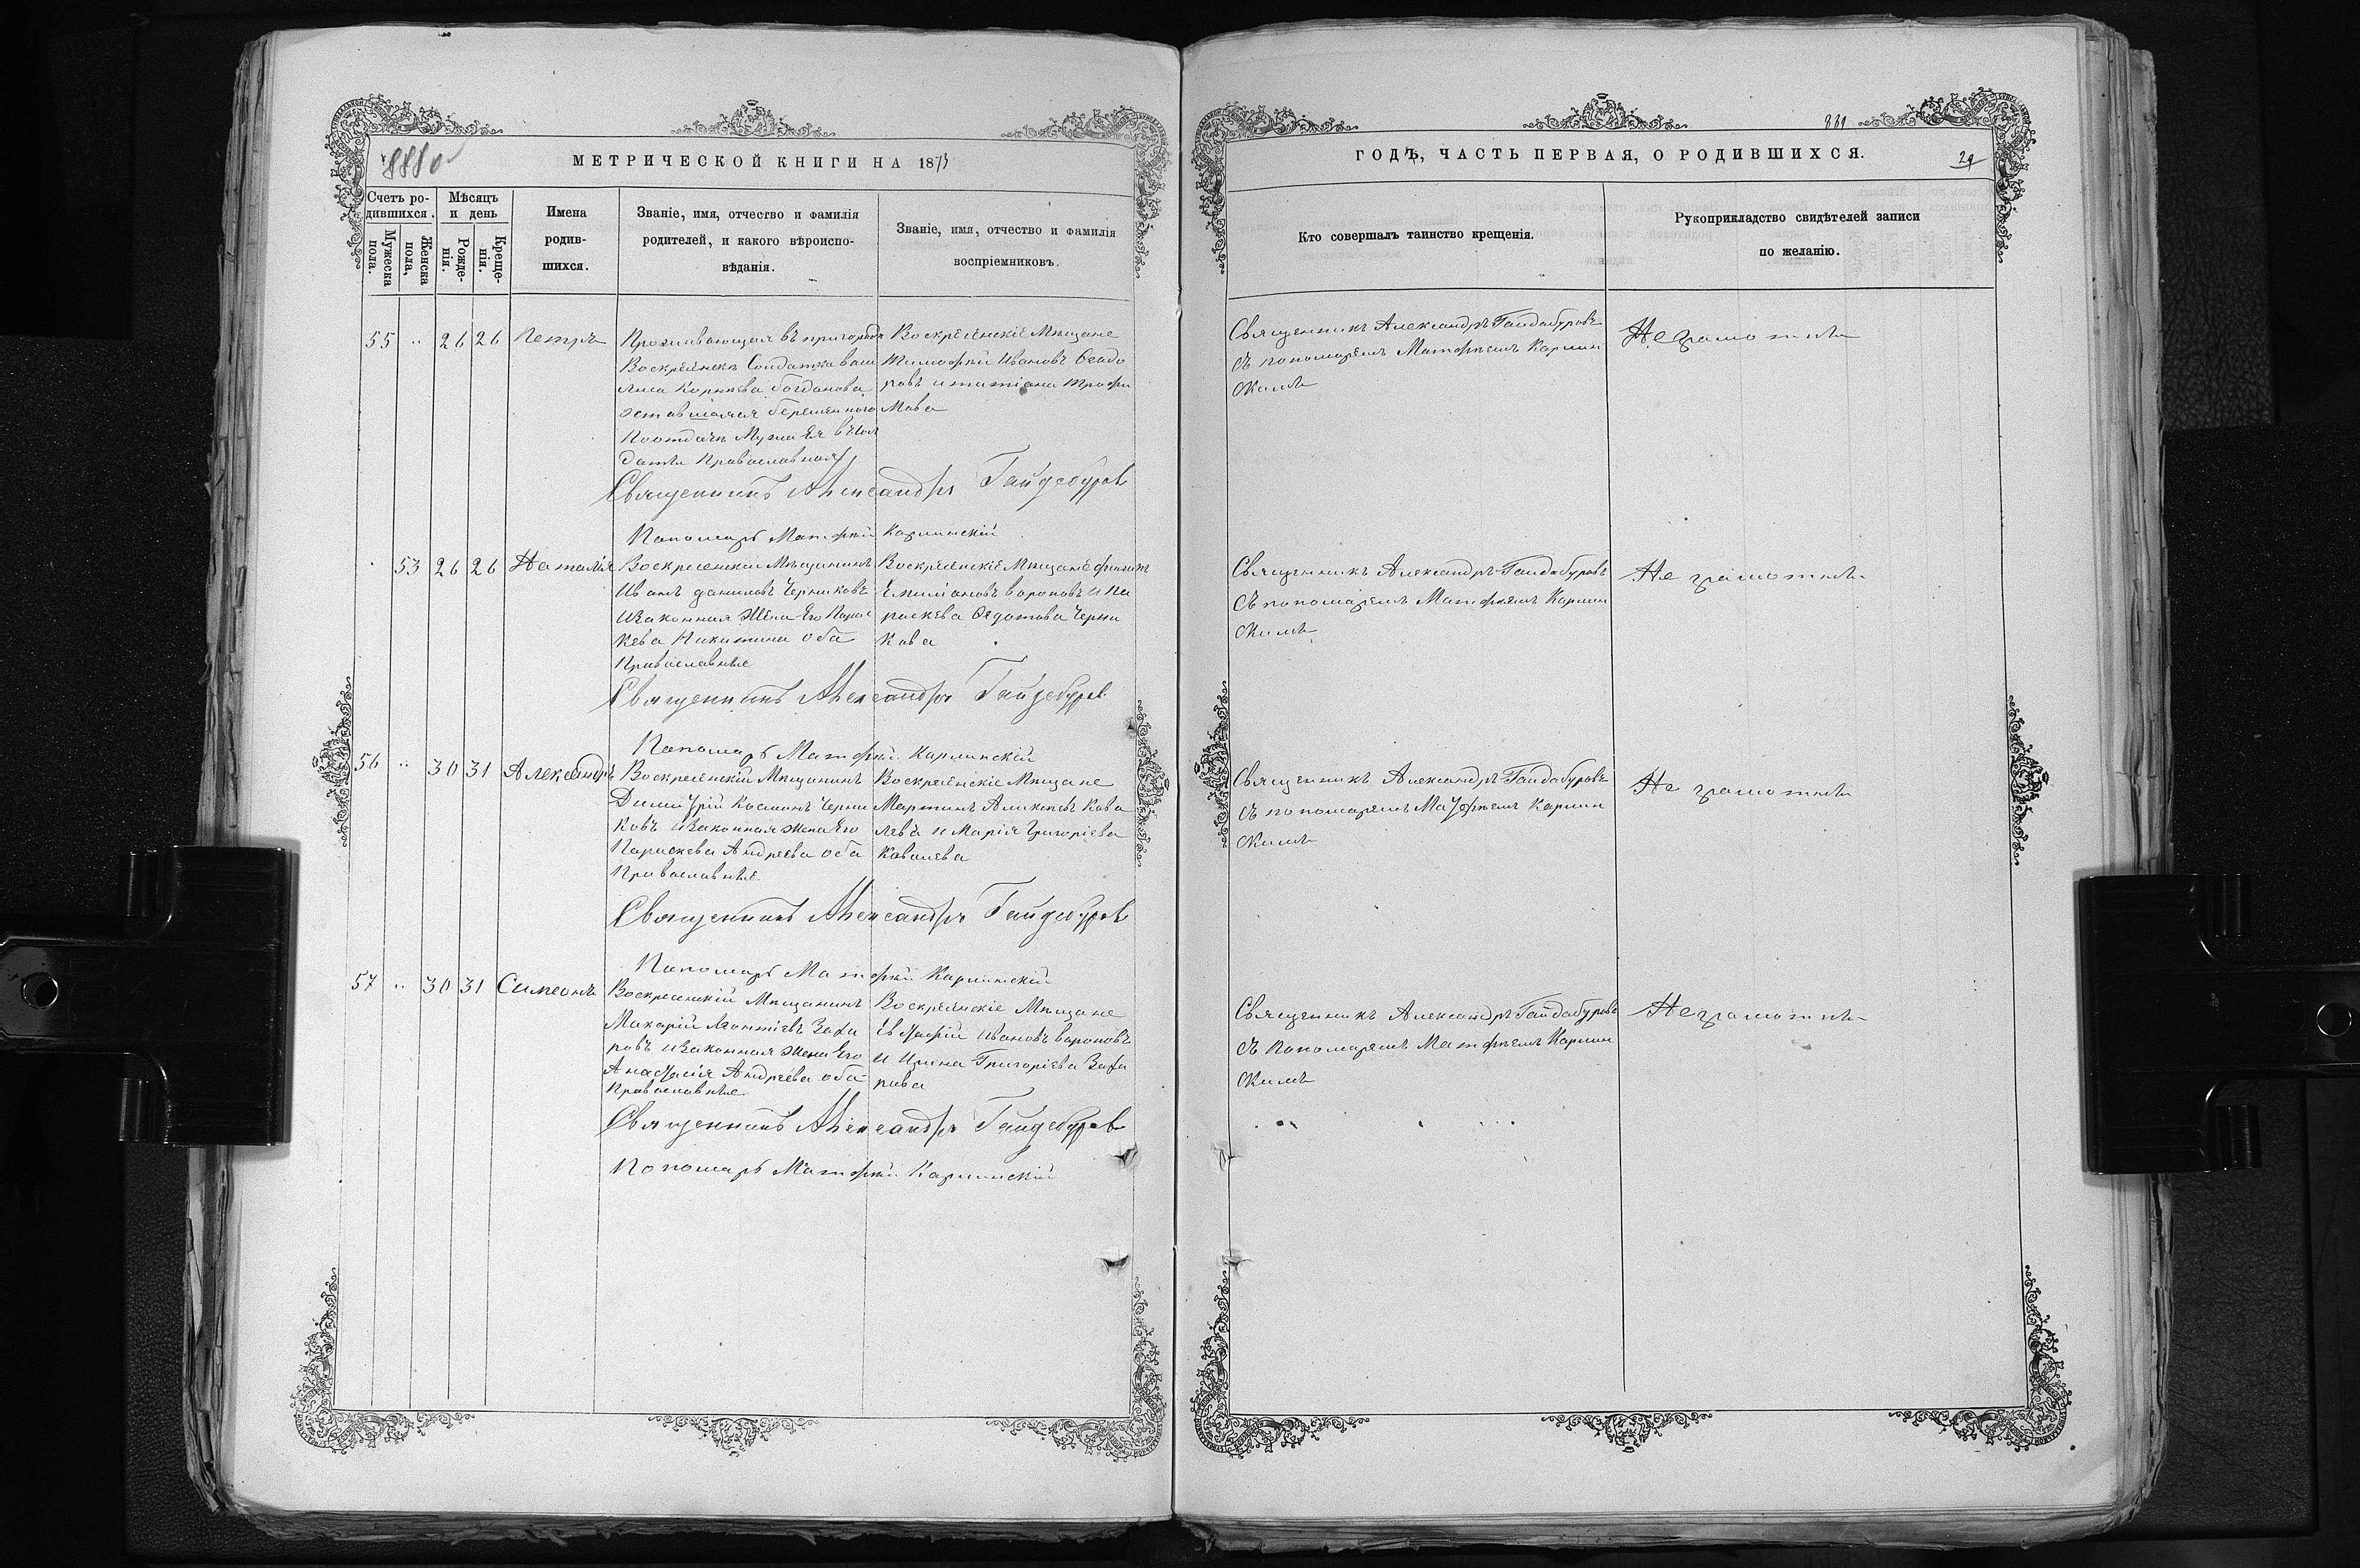 880
МЕТРИЧЕСКОЙ КНИГИ НА 1873
Счетъ ро-
дившихся.
Мужеска
пола.
Женска
пола,
Мѣсяцъ
и день
Рожде-
нія.
Креще-
нія.
Имена
родив-
шихся.
Званіе, имя, отчество и фамилія
родителей, и какого вѣроиспо-
вѣданія.
Званіе, имя, отчество и фамилія
воспріемниковъ.
55 " 26 26 Петръ
Проживающая въ пригородѣ
Воскресенск Солдатка васи
лиса Корнѣева богданова
оставшаяся беременною
Поотдачи Мужа Ея въ Сол
даты Православная,
Воскресенскіе Мѣщане
Тимофѣй Ивановъ Ѳеодо
ровъ и татіана Трофи
Мова
Священникъ Александръ Гайдебуров
Пономарь Матѳѣй Карлинскій
53 26 26 Наталія
Воскресенскій Мѣщанинъ
Иванъ даниловъ Черниковъ
Изаконная Жена Его Парас
Кева Никитина оба
Православные
Воскресенскіе Мѣщане
Емилiановъ вороновъ и Па
раскева Ѳедотова Черни
Кова
Священникъ Александръ Гайдебуров
Пономарь Матѳѣй Карлинскій
56 " 30 31 Александръ
Воскресенскій Мѣщанинъ
Димитрій Косминъ Черни
Ковъ Изаконная Жена Его
Параскева Андреева оба
Православные
Воскресенскіе Мѣщане
Мартинъ Алексѣевъ Кова
левъ и Марія Григоріева
Ковалева
Священникъ Александръ Гайдебуров
Пономарь Матѳѣй Карлинскій
57 " 30 31 Симеонъ
Воскресенскій Мѣщанинъ
Макарій Леонтіевъ Заха
ровъ Изаконная Жена Его
Анастасія Андреева оба
Православные
Воскресенскіе Мѣщане
Евстафій Ивановъ вороновъ
и Ирина Григоріева Заха
рова
Священникъ Александръ Гайдебуров
Пономарь Матѳѣй Карлинскій
881
ГОДЪ, ЧАСТЬ ПЕРВАЯ, О РОДИВШИХСЯ.
29
Кто совершалъ таинство крещенія.
Рукоприкладство свидѣтелей записи
по желанію.
Священникъ Александръ Гайдабуровъ
съ пономаремъ Матфѣемъ Карлин
скимъ
Неграмотны
Священникъ Александръ Гайдабуровъ
съ пономаремъ Матфѣемъ Карлин
скимъ
Не грамотны
Священникъ Александръ Гайдабуровъ
съ пономаремъ Матфѣемъ Карлин
скимъ
Не грамотны
Священникъ Александръ Гайдабуровъ
съ Пономаремъ Матфѣемъ Карлин
скимъ
Неграмотны